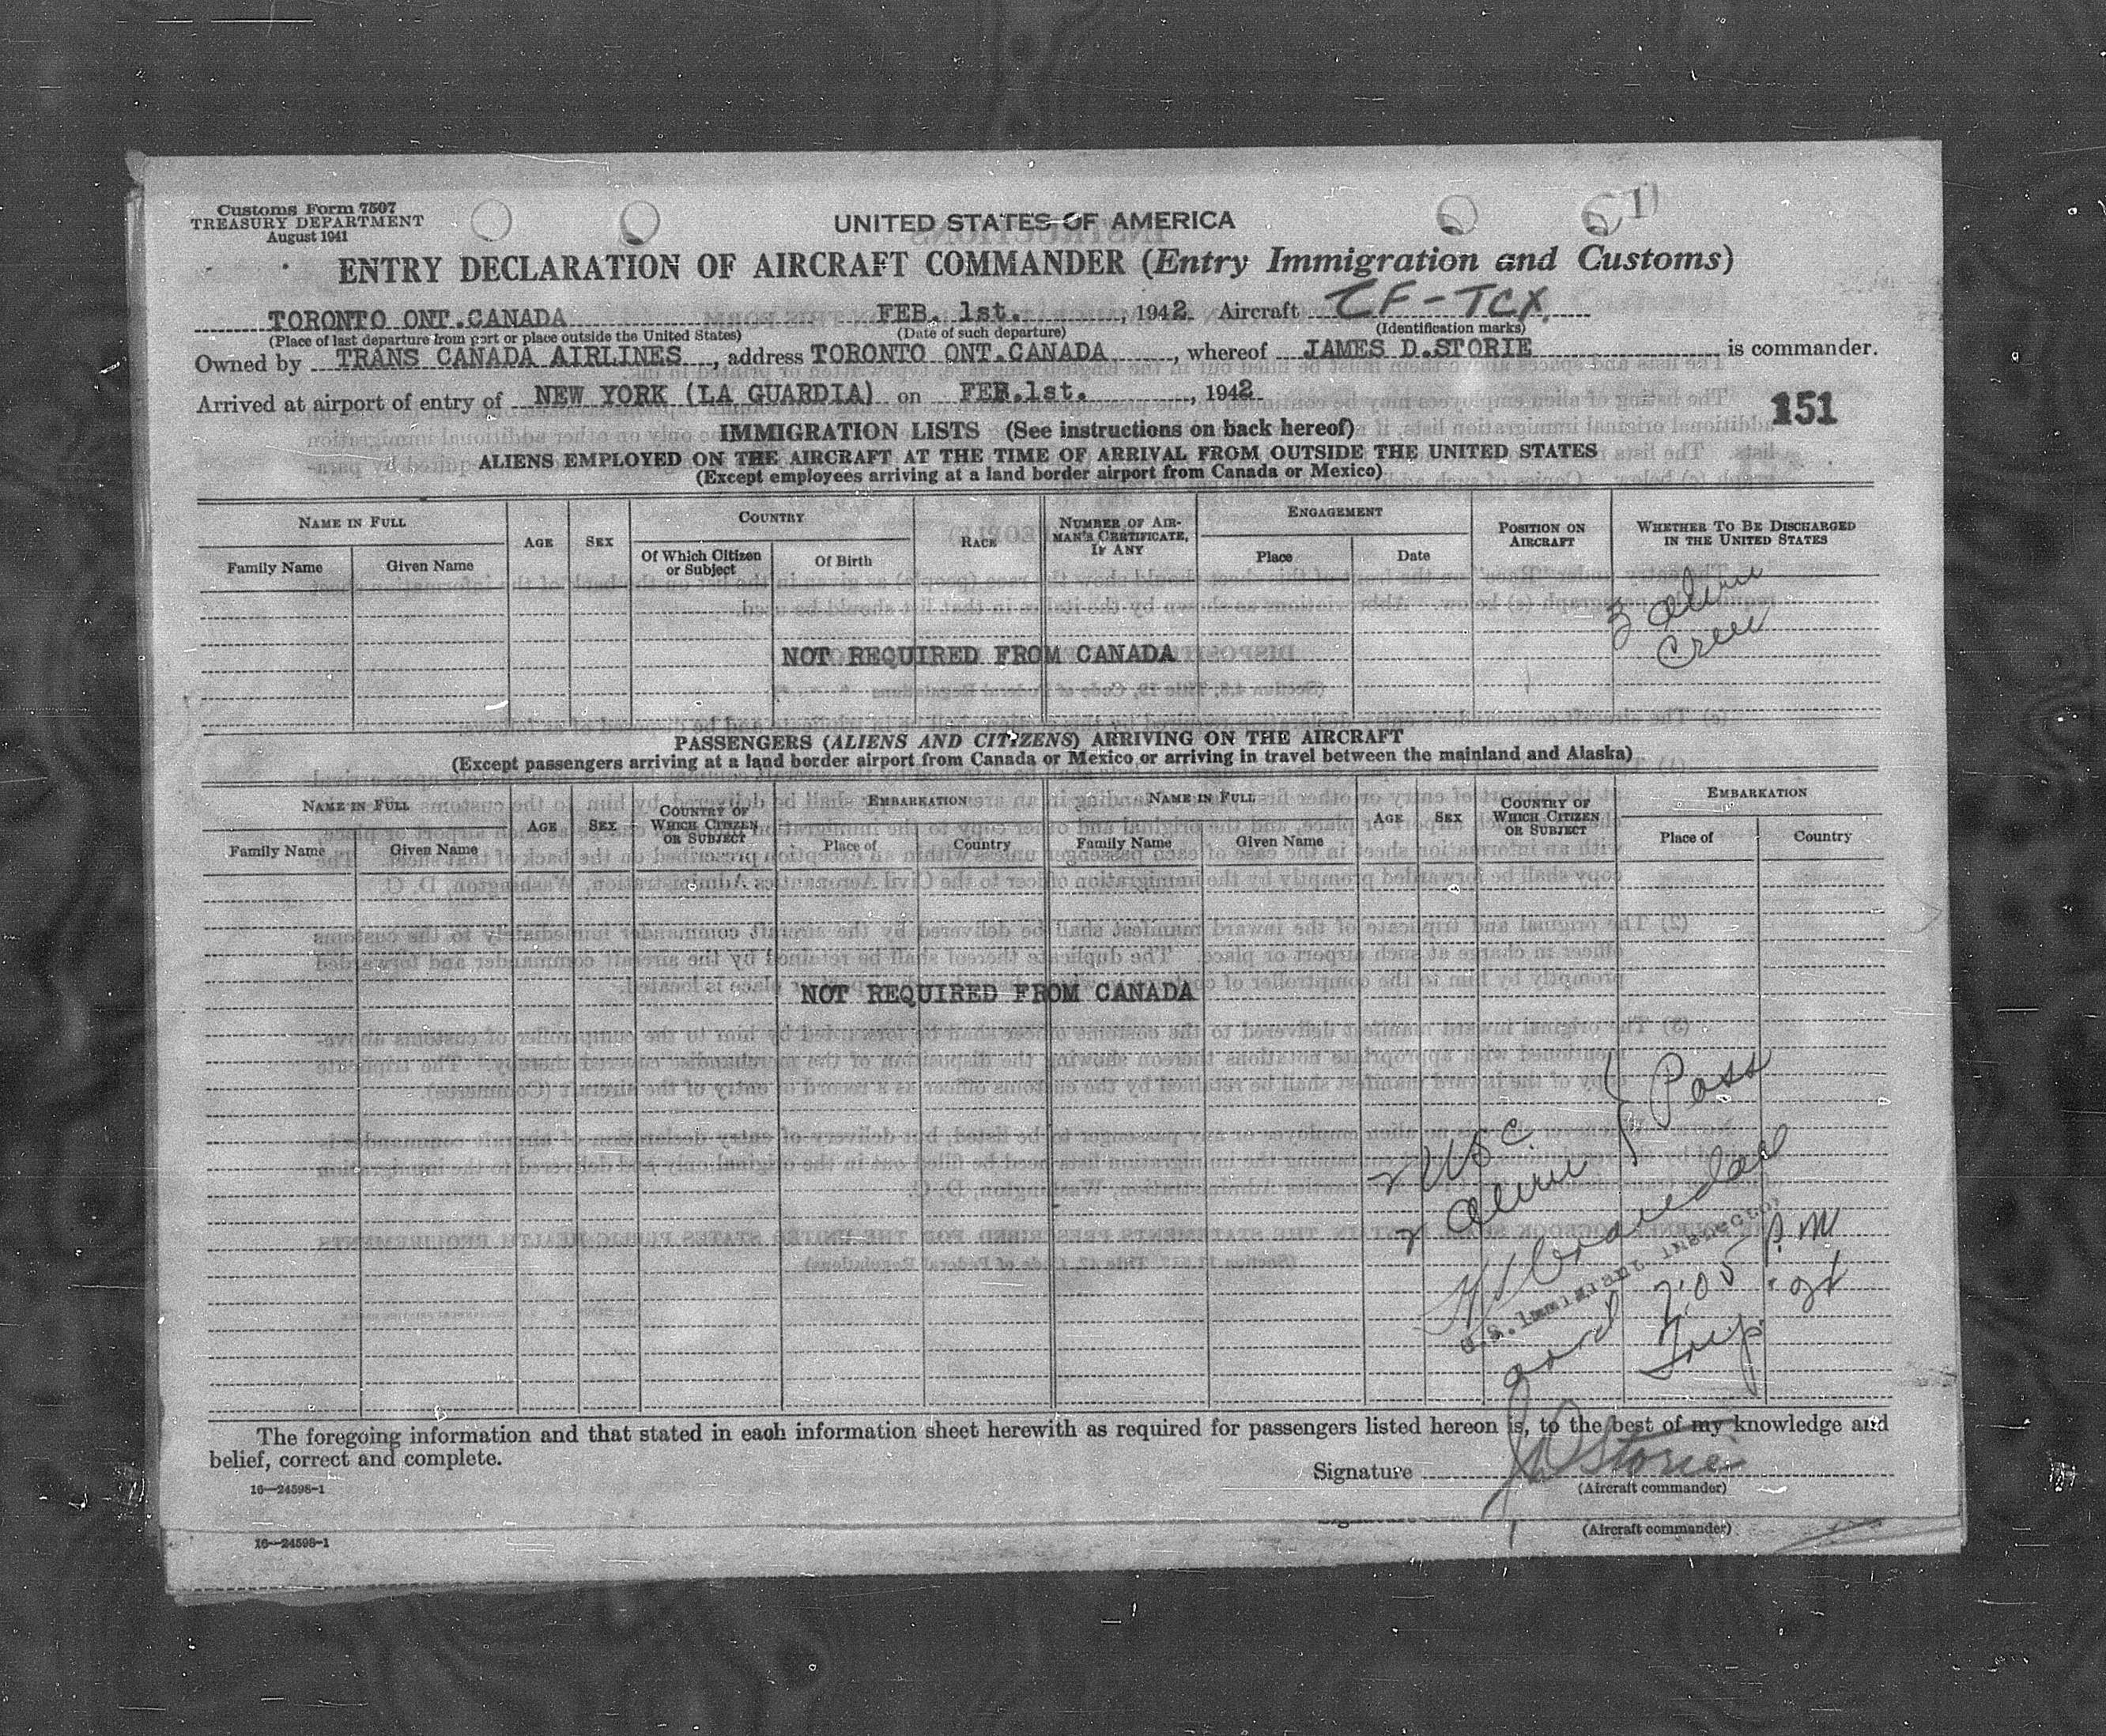 Customs Form 7507
TREASURY DEPARTMENT
August 1941
UNITED STATES OF AMERICA
ENTRY DECLARATION OF AIRCRAFT COMMANDER (Entry Immigration and Customs)
TORONTO ONT.CANADA FEB. 1st. , 1942. Aircraft CF-TCX
(Place of last departure from port or place outside the United States) (Date of such departure) (Identification marks)
Owned by TRANS CANADA AIRLINES , address TORONTO ONT.CANADA , whereof JAMES D.STORIE is commander.
Arrived at airport of entry of NEW YORK (LA GUARDIA) on FEB.1st. , 1942
151
IMMIGRATION LISTS (See instructions on back hereof)
ALIENS EMPLOYED ON THE AIRCRAFT AT THE TIME OF ARRIVAL FROM OUTSIDE THE UNITED STATES
(Except employees arriving at a land border airport from Canada or Mexico)
NAME IN FULL AGE SEX COUNTRY RACE NUMBER OF AIRMAN'S CERTIFICATE, IF ANY ENGAGEMENT POSITION ON AIRCRAFT WHETHER TO BE DISCHARGED IN THE UNITED STATES
Family Name Given Name Of Which Citizen or Subject Of Birth Place Date
3 alien
Crew
NOT REQUIRED FROM CANADA
PASSENGERS (ALIENS AND CITIZENS) ARRIVING ON THE AIRCRAFT
(Except passengers arriving at a land border airport from Canada or Mexico or arriving in travel between the mainland and Alaska)
NAME IN FULL AGE SEX COUNTRY OF WHICH CITIZEN OR SUBJECT EMBARKATION NAME IN FULL AGE SEX COUNTRY OF WHICH CITIZEN OR SUBJECT EMBARKATION
Family Name Given Name Place of Country Family Name Given Name Place of Country
NOT REQUIRED FROM CANADA
2 USC
2 alien
Pass
U.S. Immigrant Inspector
7:05 P.M
Insp.
The foregoing information and that stated in each information sheet herewith as required for passengers listed hereon is, to the best of my knowledge and
belief, correct and complete.
Signature JDStorie
(Aircraft commander)
16—24598-1
(Aircraft commander)
16—24598-1